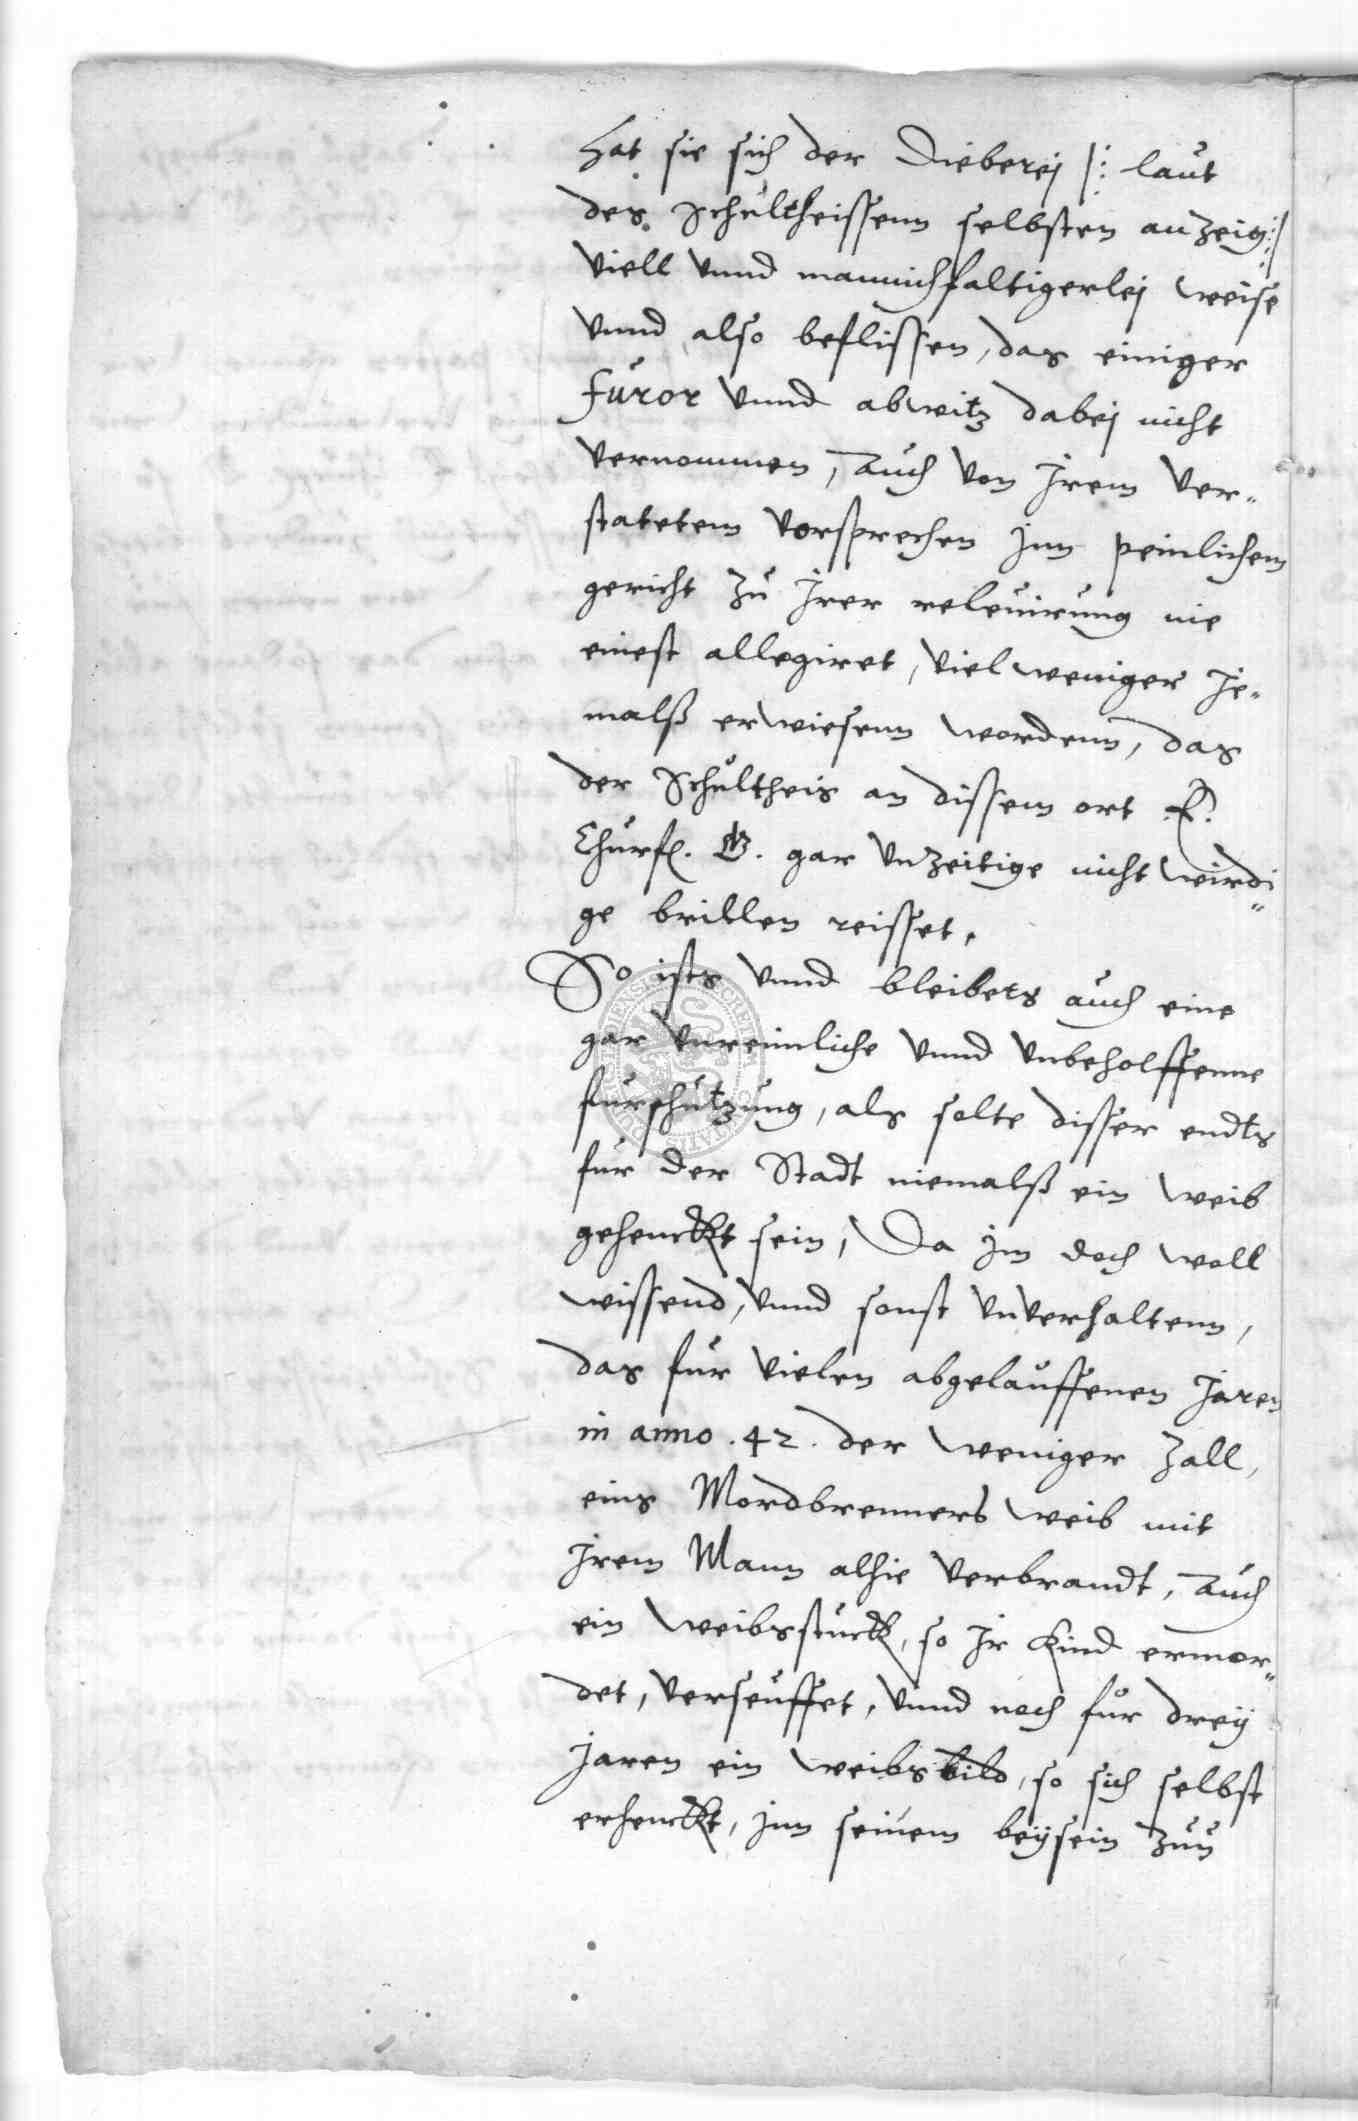 hat sie sich der Dieberej |: laut
des Schultheissenn selbsten anzeig :|
viell vnnd mannichfaltigerlej weise
vnnd also beflissen, das einiger
furor vnnd abwitz dabej nicht
vernommen, auch von jrem ver-
statetem vorsprechen jnn peinlichem
gericht zu jrer releuirung nie
einest allegiret, viel weniger je-
malß erwiesenn wordenn, das
der Schultheis an dissem ort E.
Churf. G. gar vnzeitige nicht wirdi-
ge brillen reisset.
So ists vnnd bleibets auch eine
gar vnreimliche vnnd vnbeholffenne
furschutzung, als solte disser endts
fur der Stadt niemalß ein weib
gehenckt sein, Da jm doch woll
wissend, vnnd sonst vnverhaltenn,
das fur vielen abgelauffenen jaren
in anno .42. der weniger zall,
eins Mordbrenners weib mit
jrem Mann alhie verbrandt, auch
ein weibsstuck, so jr Kind ermor-
det, verseuffet, vnnd noch fur dreÿ
jaren ein weibsbild, so sich selbst
erhenckt, jnn seinem beÿsein zun